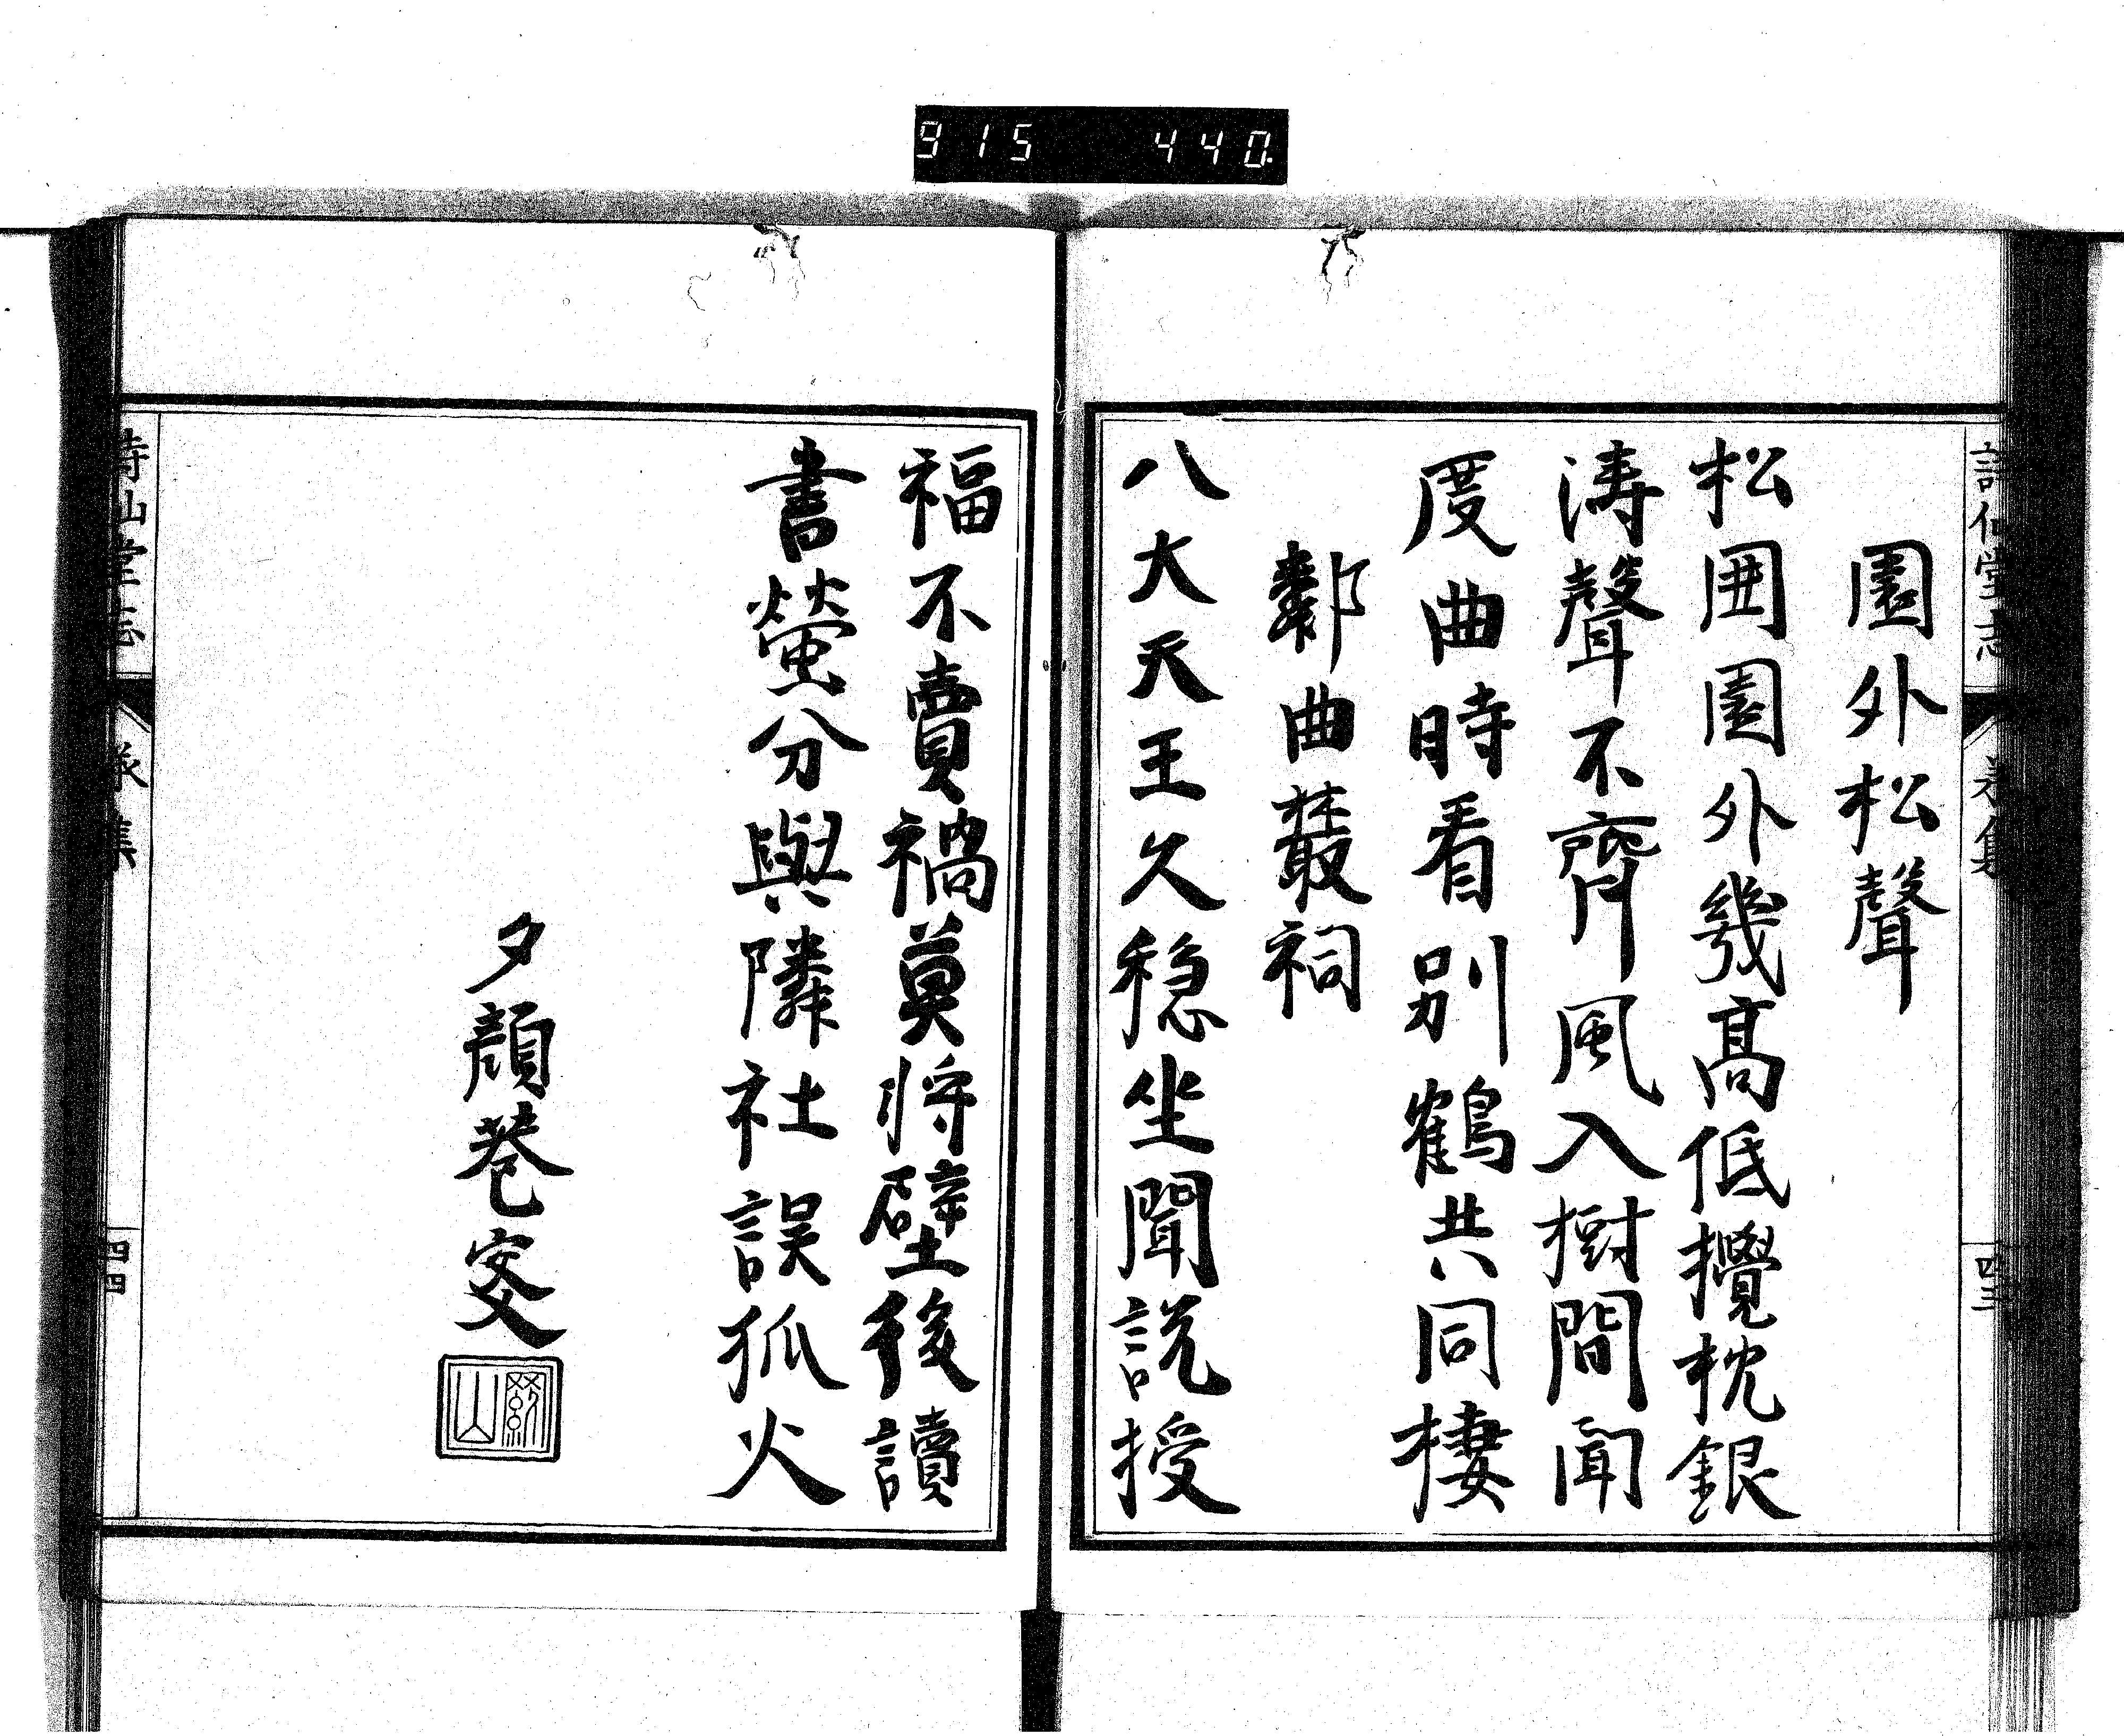 915 440.
園外松聲
松囲園外幾高低攪枕銀
濤聲不齊風入樹間聞
度曲時看別鶴共同棲
鄰曲叢祠
八大天王久穏坐聞説授
福不賣禍莫將壁後讀
書螢分與隣社誤狐火
夕顔巷客
詩仙堂志
四三
詩仙堂志
四四